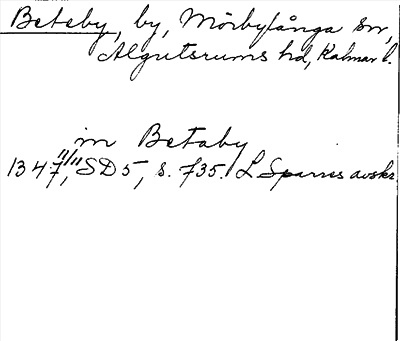 Beteby, by, Mörbylånga sn,
Algutsrums hd, Kalmar l.
in Betaby
1347 11/11, SD 5, s. 735. L Sparres avskr